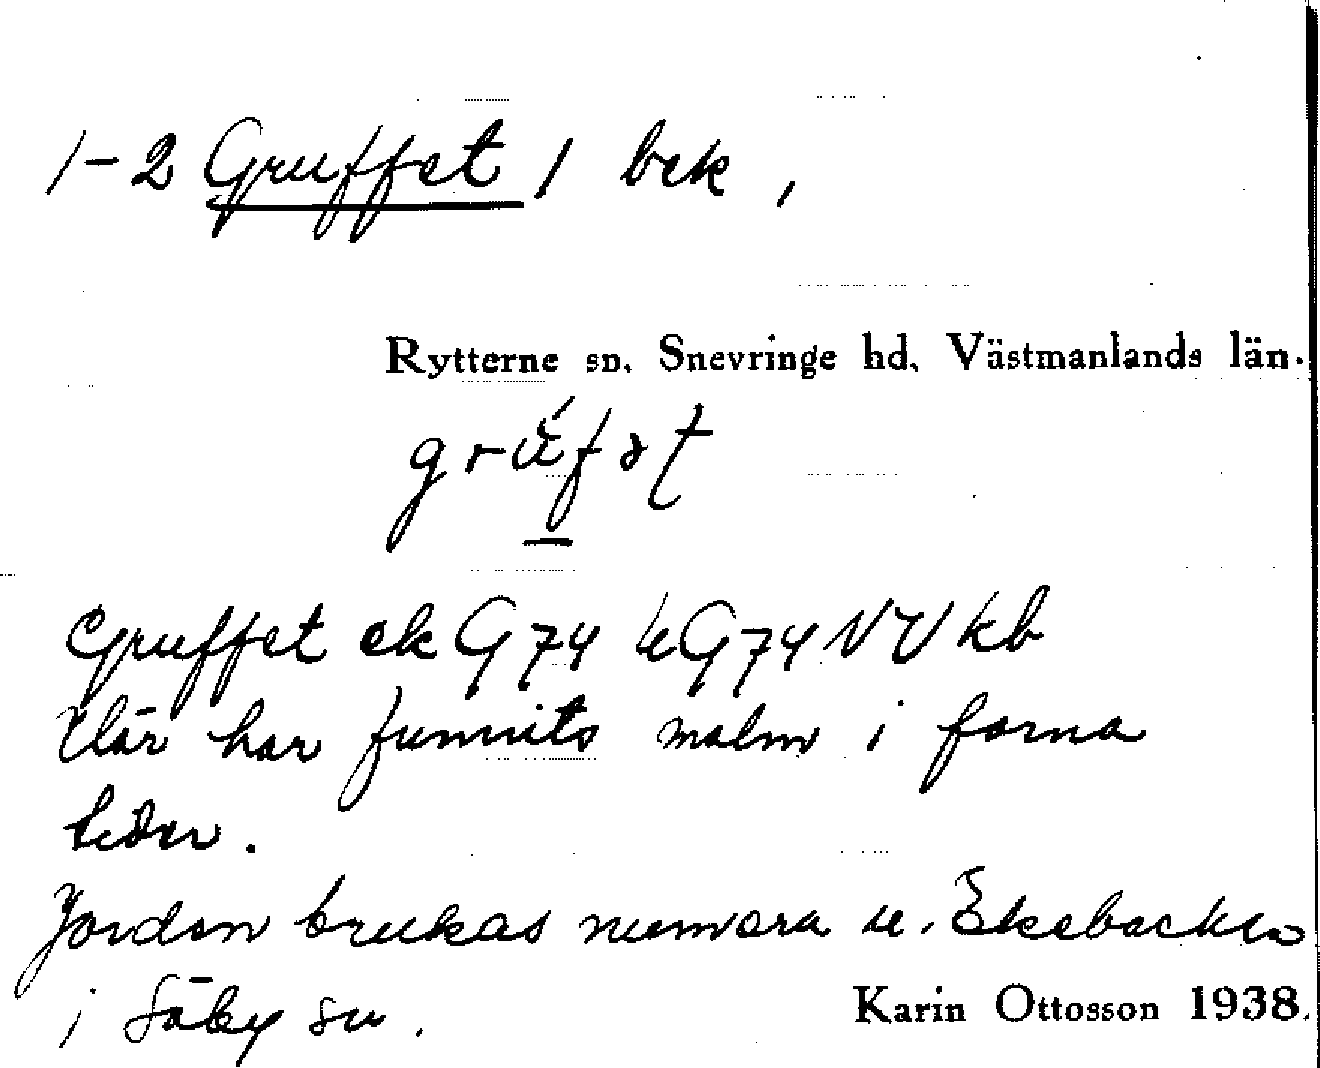 1-2 Gruffet / bek,
Rytterne sn. Snevringe hd. Västmanlands län.
grúfət
Gruffet ek G74 G74 NV kb
Här har funnits malm i forna
tider.
Jorden brukas numera u. Ekebacken
i Säby sn.
Karin Ottosson 1938.